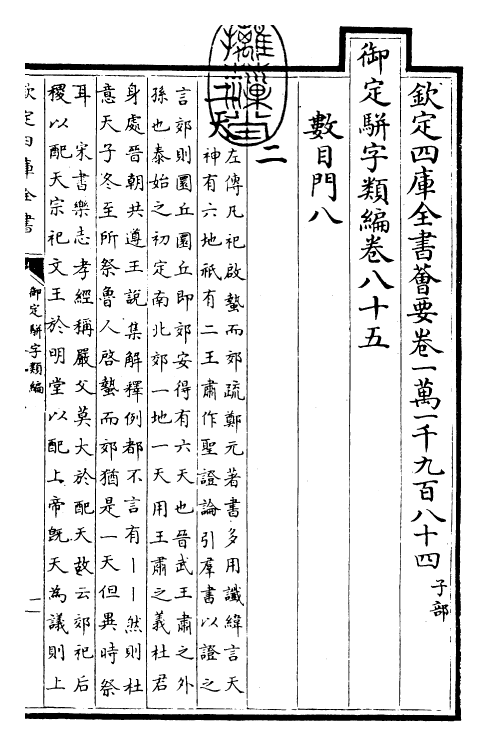 欽定四庫全書薈要卷一萬一千九百八十四 子部
御定駢字類編卷八十五
數目門八
二
二天
左傳凡祀啟蟄而郊疏鄭元著書多用讖緯言天
神有六地祇有二王肅作聖證論引羣書以證之
言郊則圜丘圜丘即郊安得有六天也晉武王肅之外
孫也泰始之初定南北郊一地一天用王肅之義杜君
身處晉朝共遵王說集解釋例都不言有丨丨然則杜
意天子冬至所祭魯人啓蟄而郊猶是一天但異時祭
耳 宋書樂志孝經稱嚴父莫大於配天故云郊祀后
稷以配天宗祀文王於明堂以配上帝旣天為議則上
欽定四庫全書
御定駢字類編
一